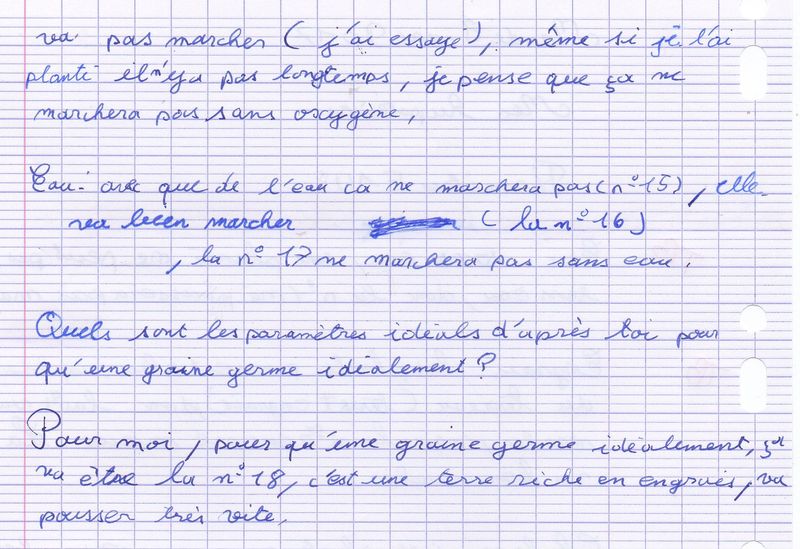 va pas marcher ( j'ai essayé), même si je l'ai
planté il n'y a pas longtemps, je pense que ça ne
marchera pas sans oxygène,
Eau: avec que de l'eau ca ne maschera pas (n°15), elle
va bien marcher ( la n°16)
, la n° 17 ne marchera pas sans eau.
Quels sont les paramètres idéals d'après toi pour
qu'une graine germe idéalement?
Pour moi, pour qu'une graine germe idéalement, ça
va être la n°18, c'est une terre riche en engrais, va
pousser très vite.